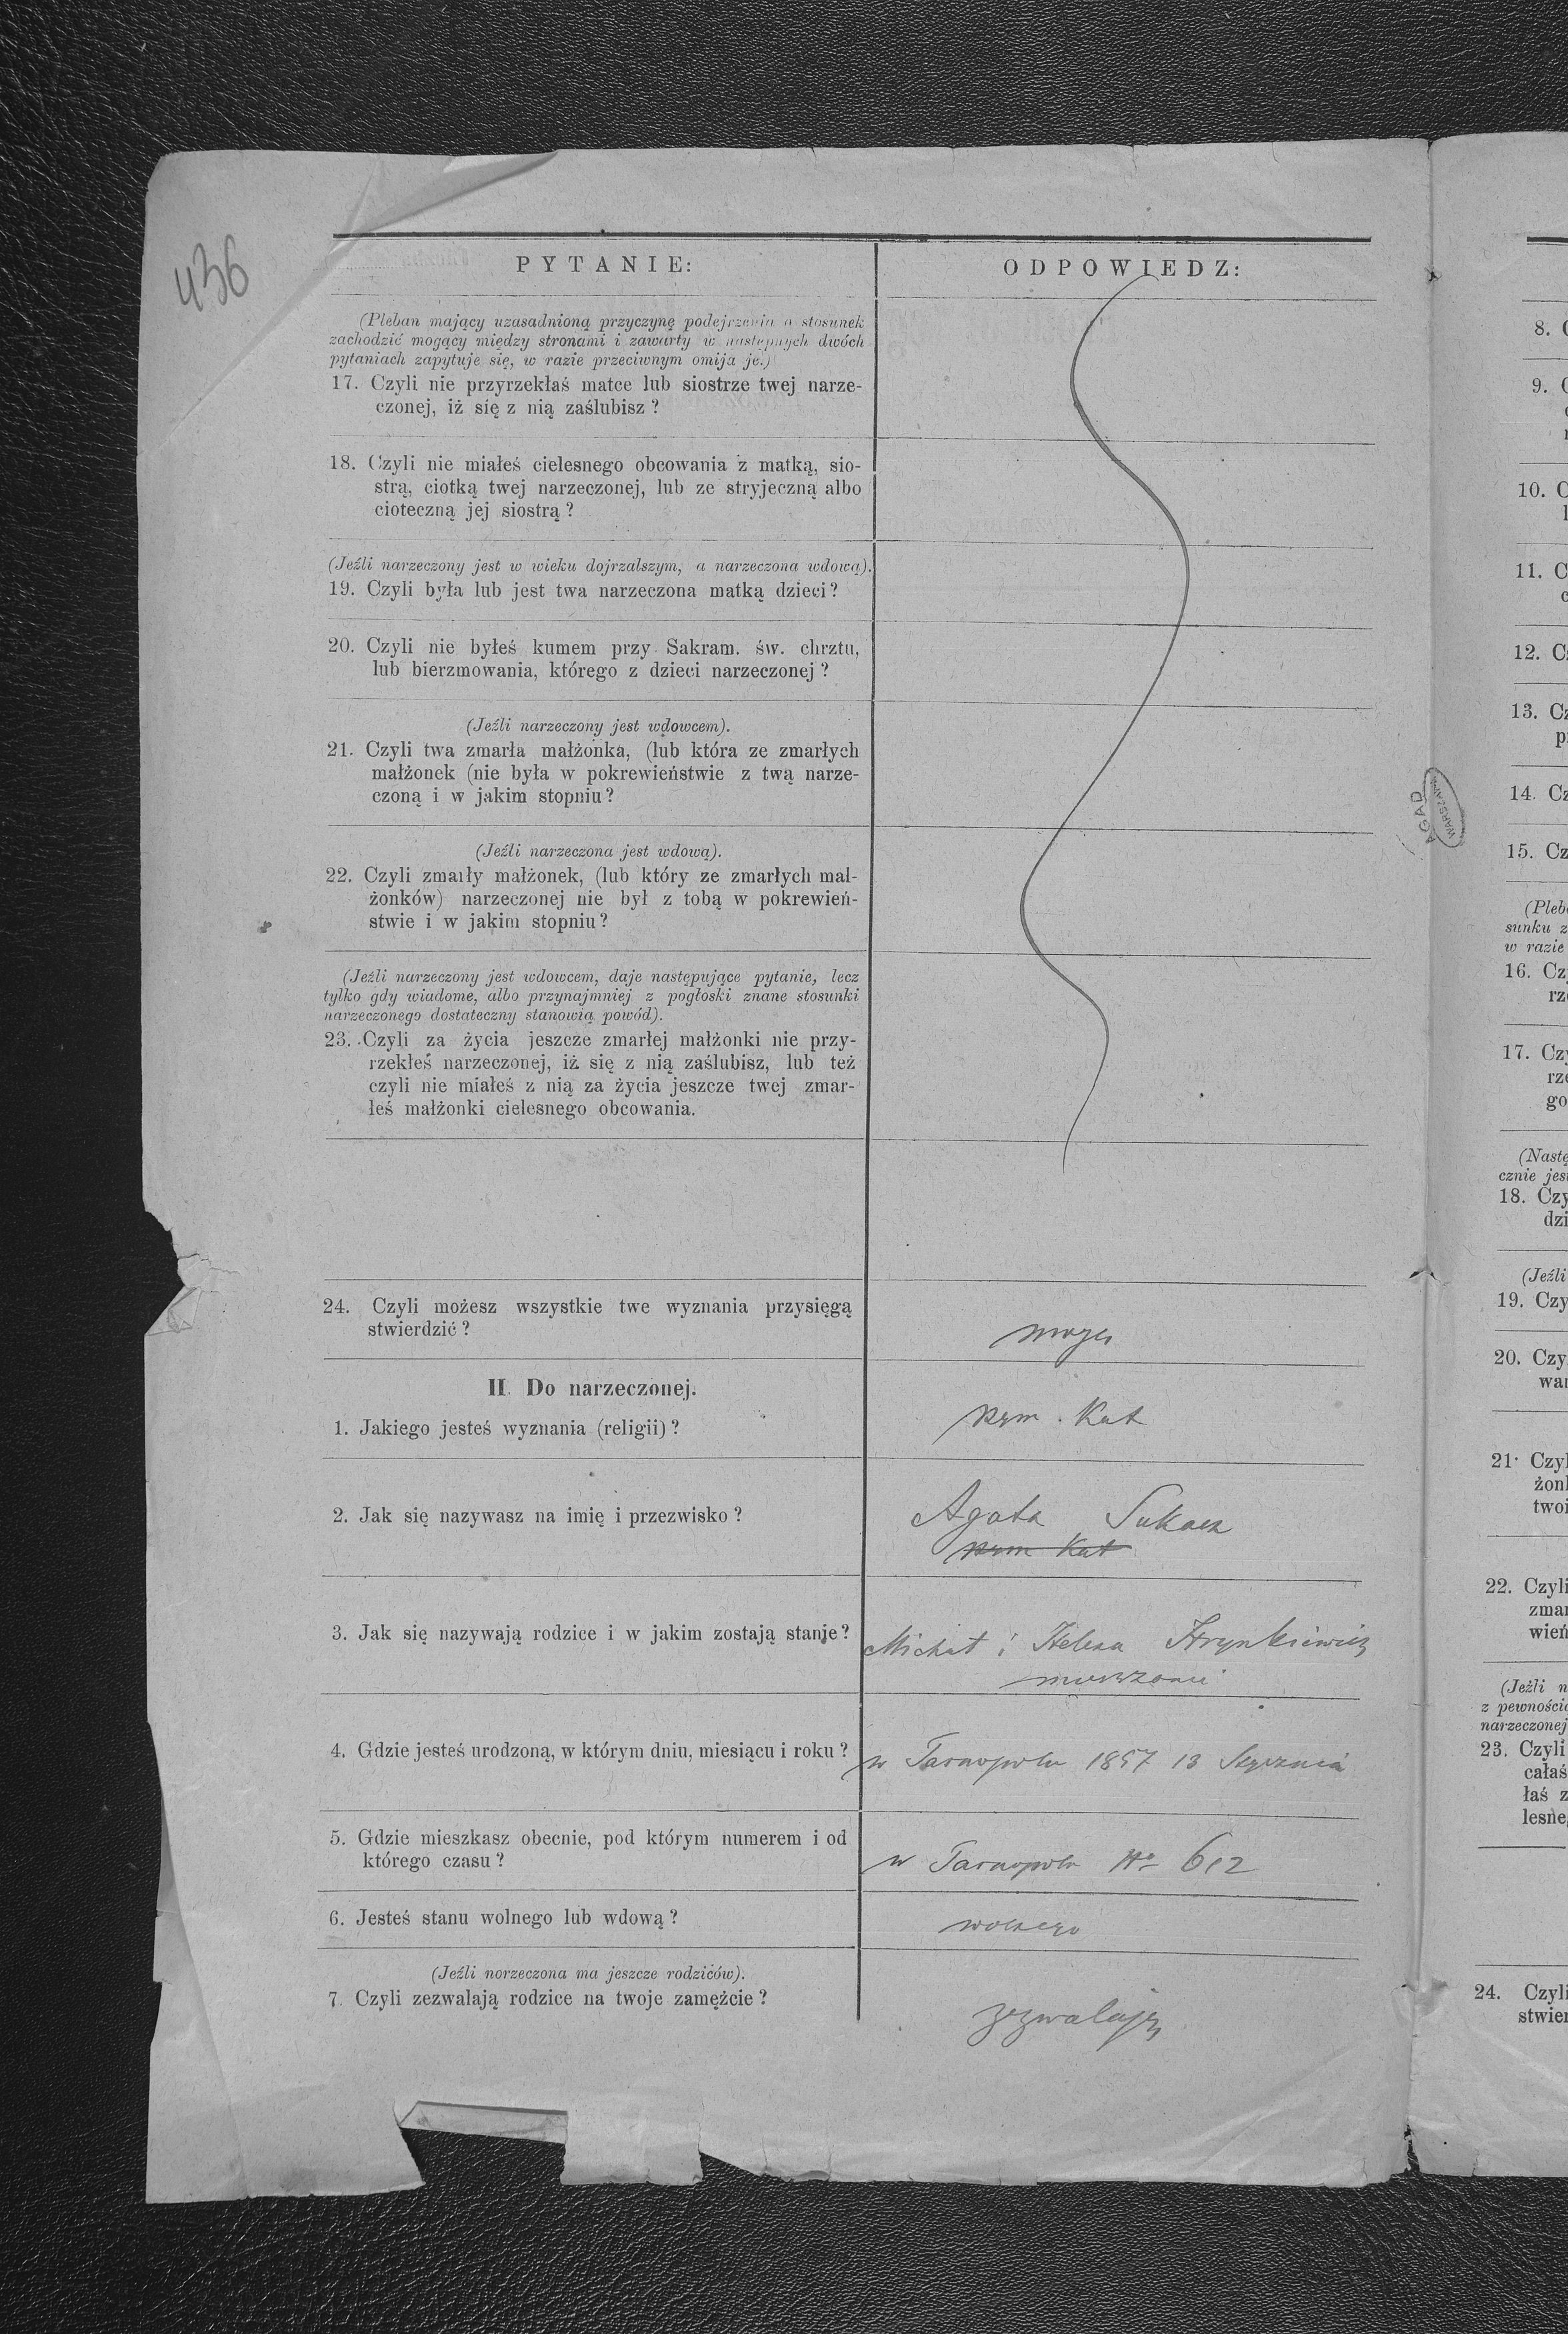 436
PYTANIE:
ODPOWIEDZ:
(Pleban mający uzasadnioną przyczynę podejrzenia o stosunek
zachodzić mogący między stronami i zawarty w następnych dwóch
pytaniach zapytuje się, w razie przeciwnym omija je.)
17. Czyli nie przyrzekłaś matce lub siostrze twej narze-
czonej, iż się z nią zaślubisz?
18. Czyli nie miałeś cielesnego obcowania z matką, sio-
strą, ciotką twej narzeczonej, lub ze stryjeczną albo
cioteczną jej siostrą?
(Jeźli narzeczony jest w wieku dojrzalszym, a narzeczona wdową).
19. Czyli była lub jest twa narzeczona matką dzieci?
20. Czyli nie byłeś kumem przy Sakram. św. chrztu,
lub bierzmowania, którego z dzieci narzeczonej?
(Jeźli narzeczony jest wdowcem).
21. Czyli twa zmarła małżonka, (lub która ze zmarłych
małżonek (nie była w pokrewieństwie z twą narze-
czoną i w jakim stopniu?
(Jeźli narzeczona jest wdową).
22. Czyli zmarły małżonek, (lub który ze zmarłych mał-
żonków) narzeczonej nie był z tobą w pokrewień-
stwie i w jakim stopniu?
(Jeźli narzeczony jest wdowcem, daje następujące pytanie, lecz
tylko gdy wiadome, albo przynajmniej z pogłoski znane stosunki
narzeczonego dostateczny stanowią powód).
23. Czyli za życia jeszcze zmarłej małżonki nie przy-
rzekłeś narzeczonej, iż się z nią zaślubisz, lub też
czyli nie miałeś z nią za życia jeszcze twej zmar-
łeś małżonki cielesnego obcowania.
24. Czyli możesz wszystkie twe wyznania przysięgą
stwierdzić?
mogę
II. Do narzeczonej.
1. Jakiego jesteś wyznania (religii)?
rzym. Kat
2. Jak się nazywasz na imię i przezwisko?
Agata
rzym Kat
3. Jak się nazywają rodzice i w jakim zostają stanie?
Michał i Helena Hrynkiewicz
mieszczanie
4. Gdzie jesteś urodzoną, w którym dniu, miesiącu i roku?
w Tarnopolu 1857 13 Stycznia
5. Gdzie mieszkasz obecnie, pod którym numerem i od
którego czasu?
w Tarnopolu No 612
6. Jesteś stanu wolnego lub wdową?
wolnego
(Jeźli norzeczona ma jeszcze rodziców).
7. Czyli zezwalają rodzice na twoje zamężcie?
zezwalają
AGAD
WARSZAWA
8.
9.
10.
11.
12.
13.
14.
15.
(Pleb
sunku z
w razie
16.
rz
17. Czy
rz
go
(Nastę
cznie jes
18. Czy
dzi
(Jeźli
19. Czy
20. Czy
wan
21. Czyl
żon
twoi
22. Czyli
zmar
wień
(Jeźli n
z pewnością
narzeczonej
23. Czyli
całaś
łaś z
lesne
24. Czyli
stwier